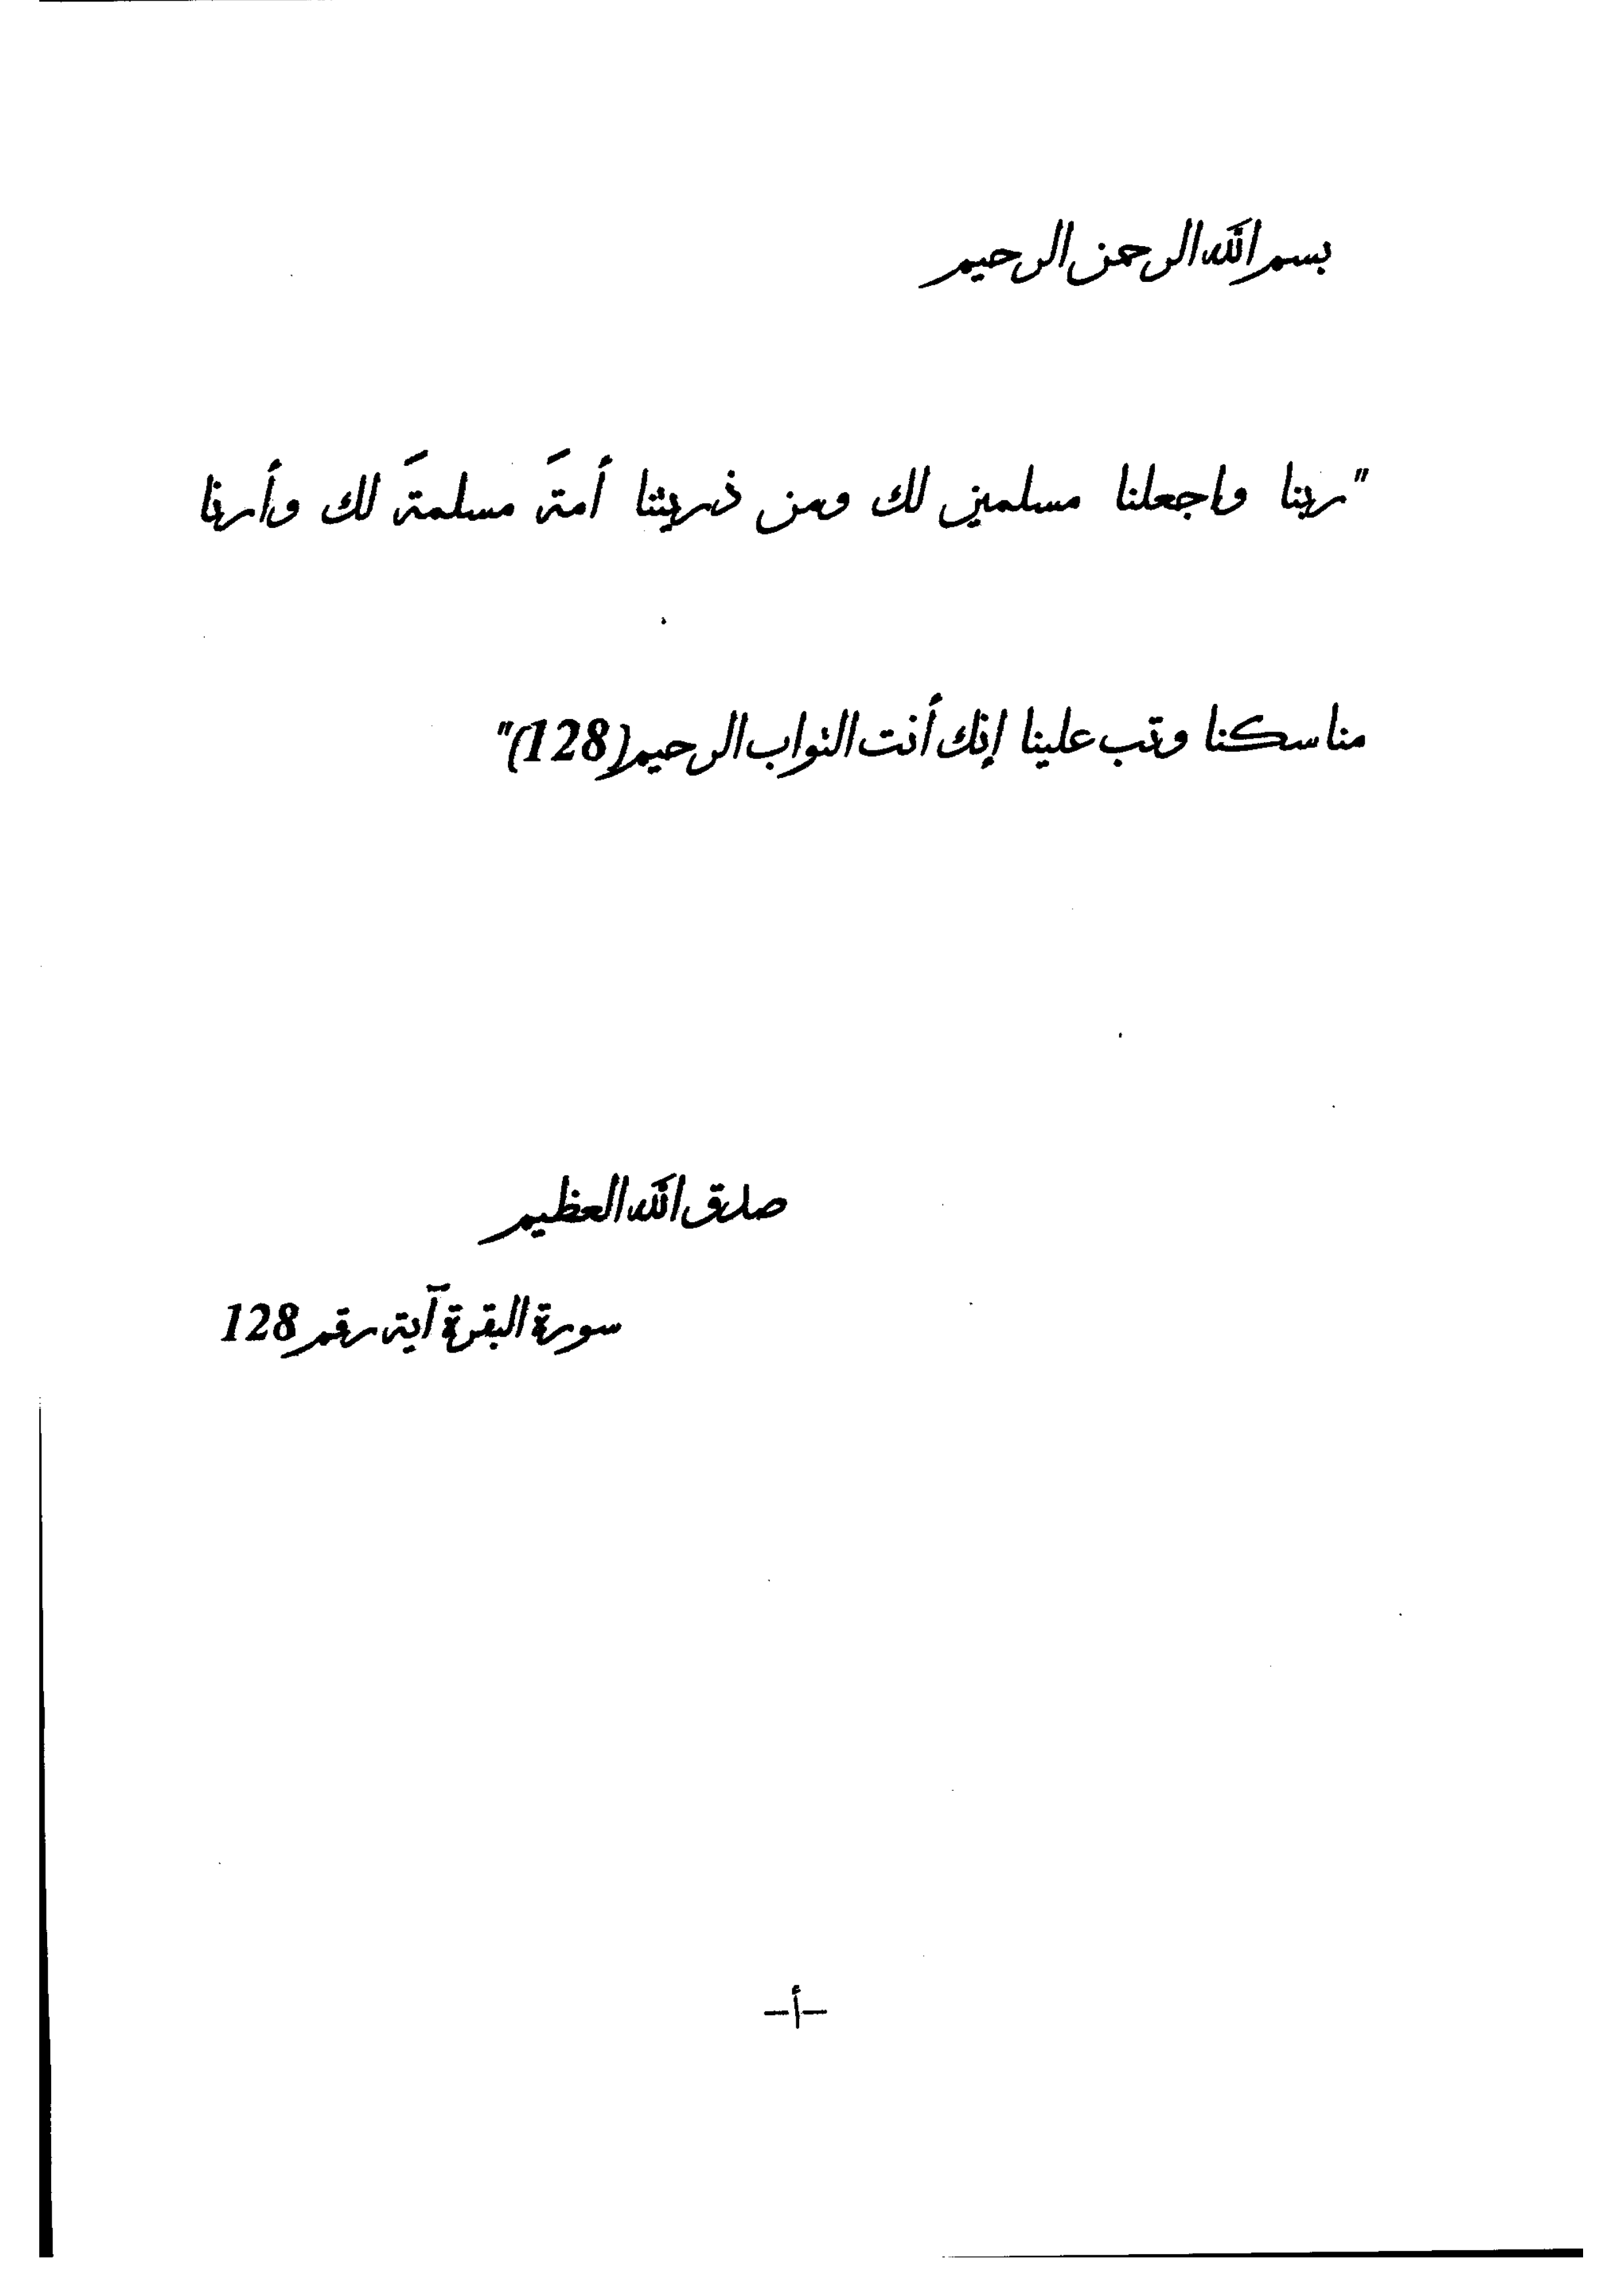 بسم الله الرحمن الرحيم
"ربنا واجعلنا مسلمين لك ومن ذريتنا أمةَ مسلمةَ لك وأرنا
مناسكنا وتب علينا إنك أنت التواب الرحيم(128)"
صدق الله العظيم
سورة البقرة آية رقم 128
–أ–